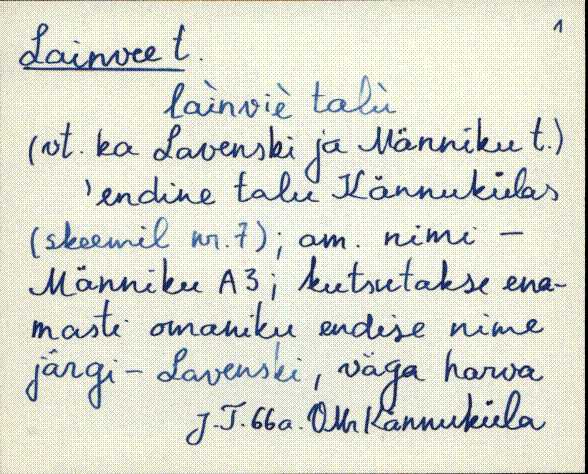 1
Lainvee t.
làinviè talù
(vt. ka Lavenski ja Männiku t.)
'endine talu Kännukülas
(skeemil nr. 7); am. nimi –
Männiku A3; kutsutakse ena-
masti omaniku endise nime
järgi – Lavenski, väga harva
J.T. 66a. Kännuküla